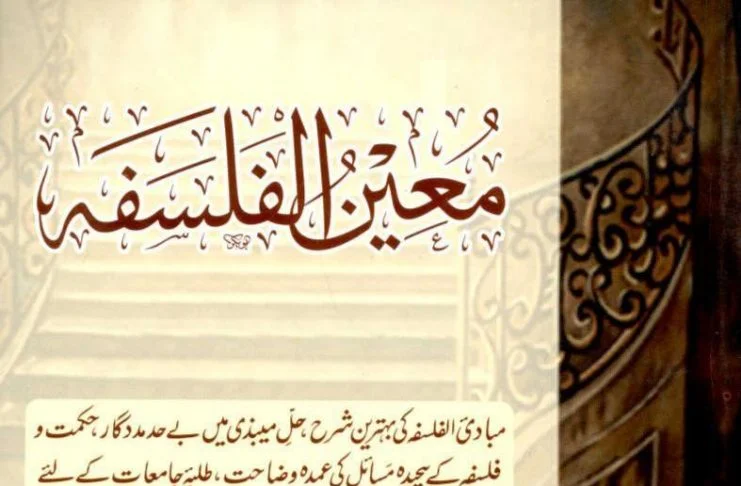 مُعِیْنُ الفَلسَفَہ
مبادئ الفلسفہ کی بہترین شرح، حلِّ میبذی میں بے حد مددگار، حکمت و
فلسفہ کے پیچیدہ مسائل کی عمدہ وضاحت، طلبۂ جامعات کے لئے